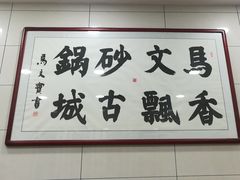 馬文砂鍋
香飄古城
馬寶書